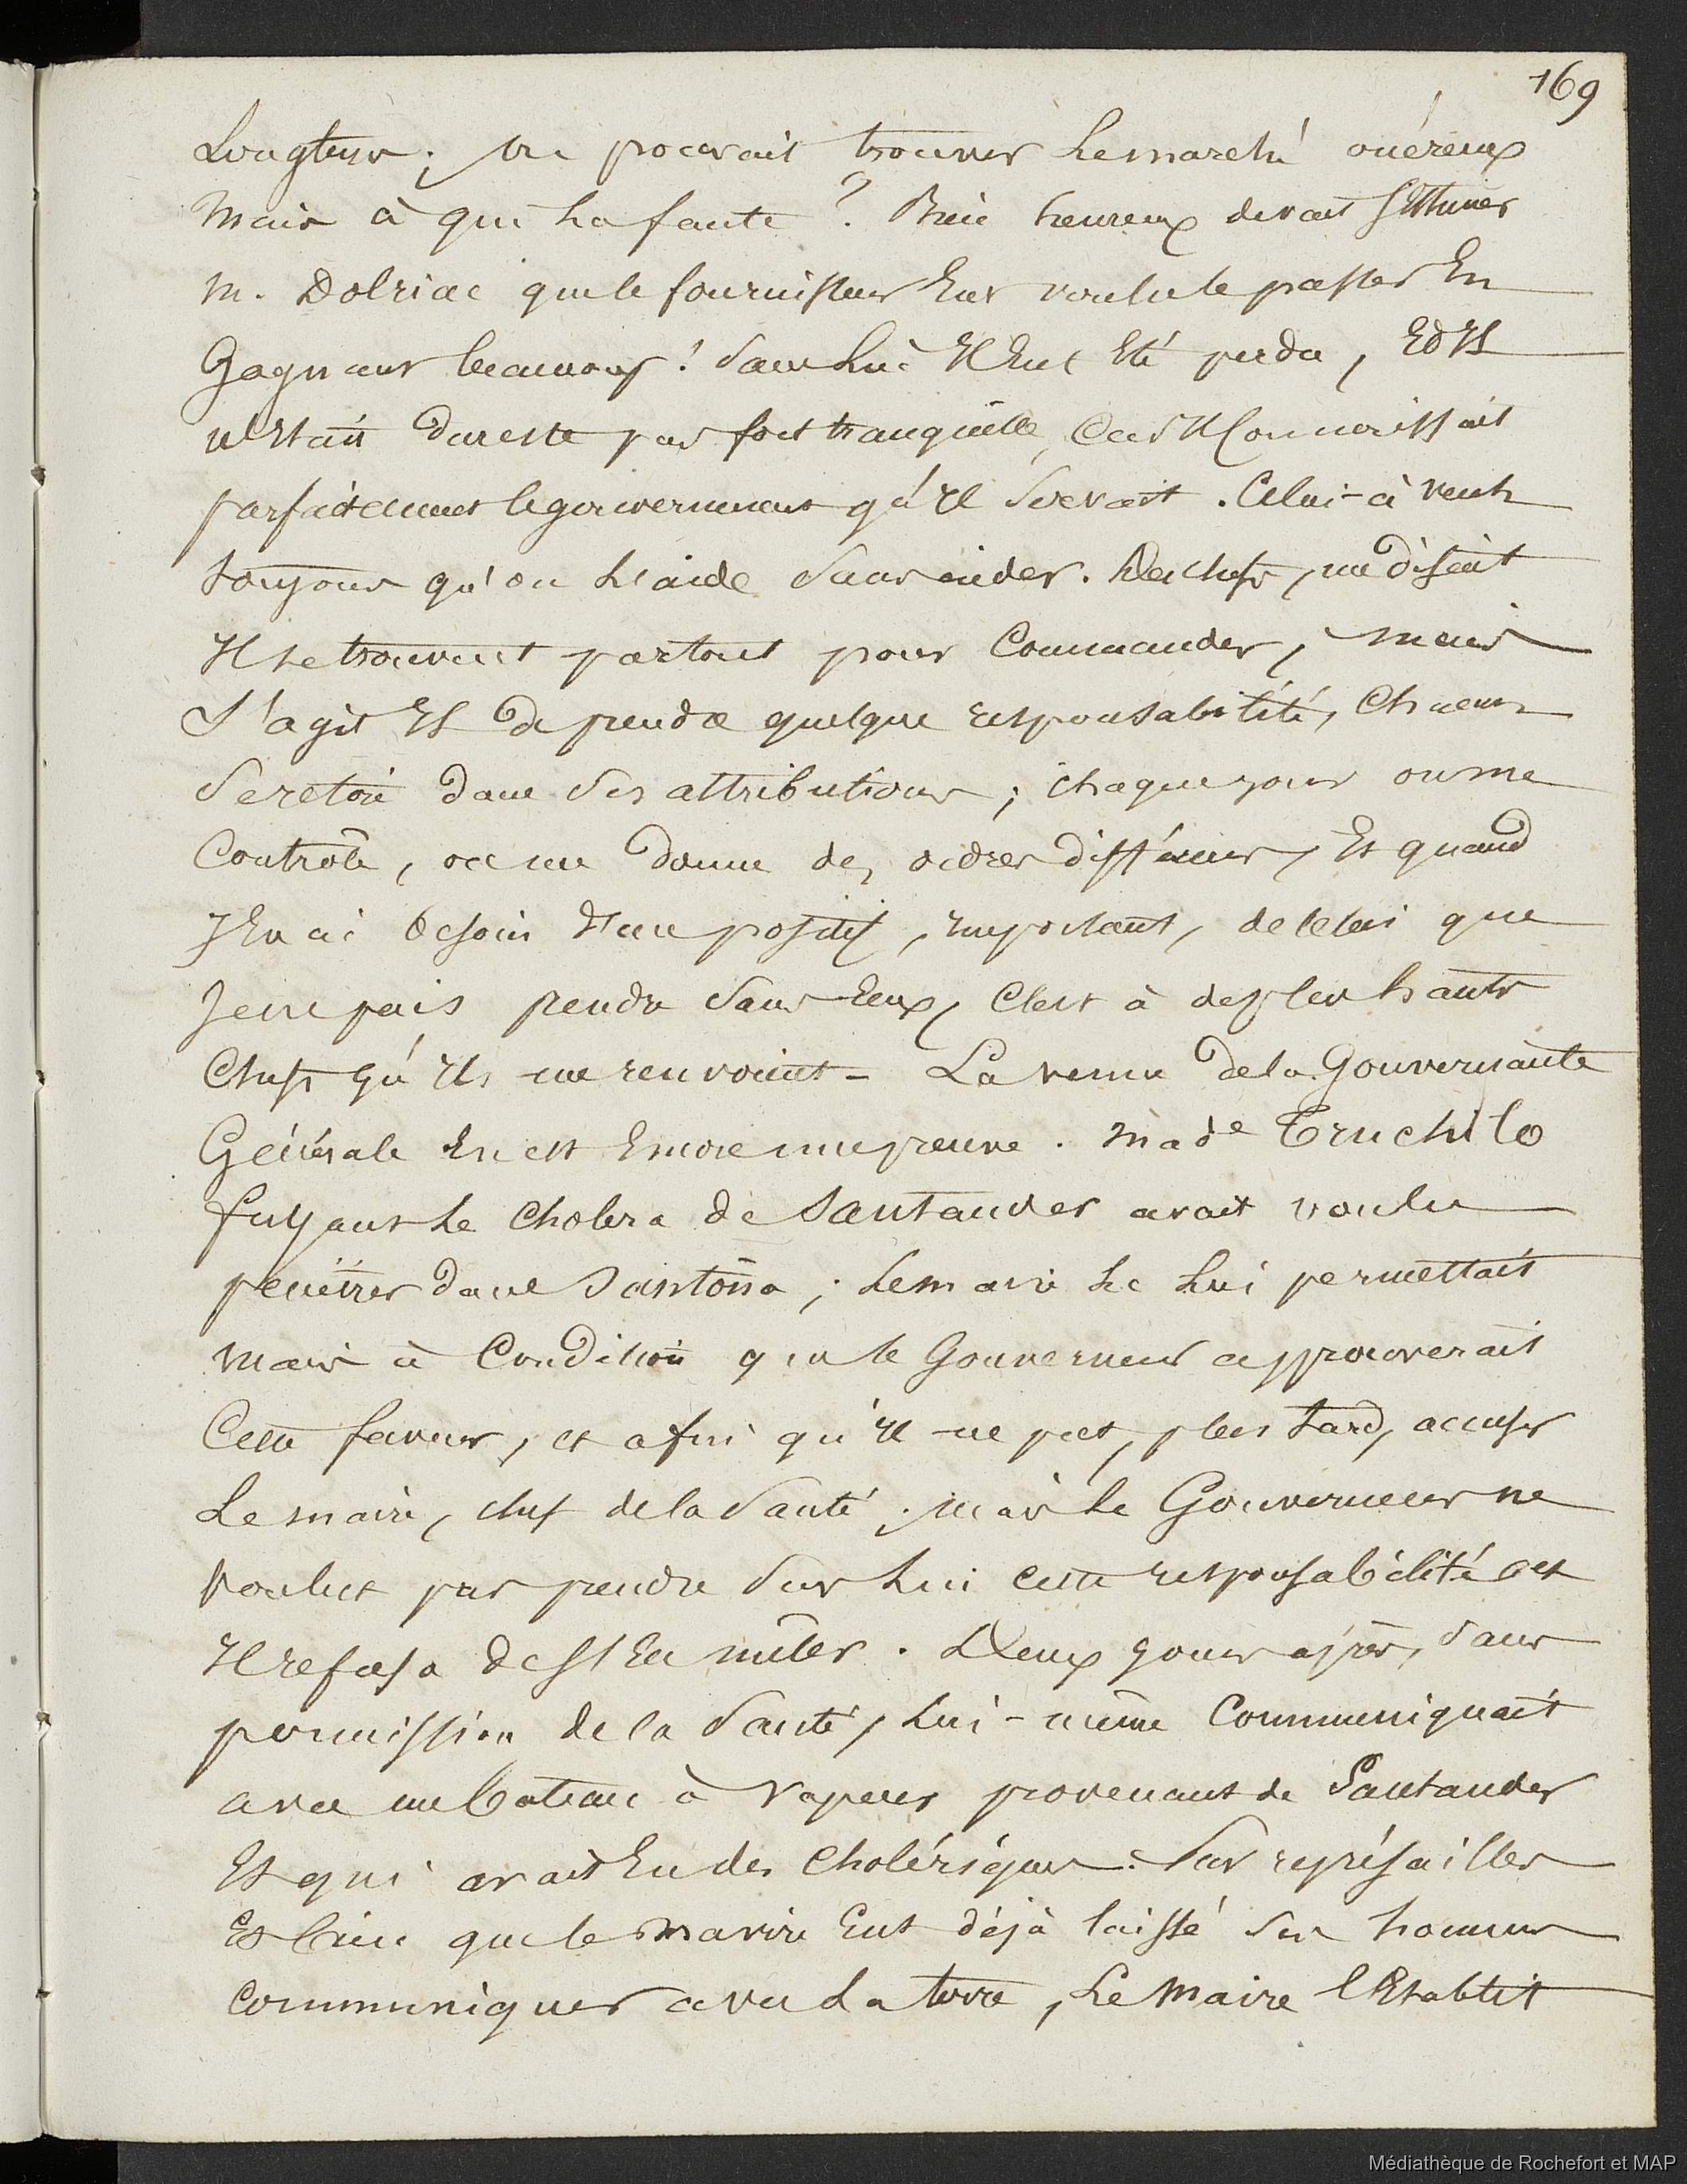 169
Longtems ; on pouvait trouver le marché onéreux
Mais à qui la faute ? Bien heureux devait s'estimer
M. Dolriac que le fournisseur eut voulu le passer En
Gagnant beaucoup ! Sans lui Il Eut Eté perdu, Et Il
n'Etait du reste pas fort tranquille, Car Il Connaissait
parfaitement le gouvernement qu'Il Servait . Celui-ci veut
toujours qu'on l'aide Sans aider. Des chefs, me disait
Il se trouvent partout pour Commander, mais
S'agit Il De prendre quelque responsabilité, Chacun
Se retire Dans Ses attributions ; chaque jour on me
Contrôle, on me Donne des ordres différents, Et quand
J'En ai besoin d'un positif, important, de celui que
Je ne puis prendre Sans Eux, C'est à des plus hauts
Chefs qu'Ils me renvoient - La venue De la Gouvernante
Générale En est Encore une preuve . Made Truchilo
fuyant le Cholera de Santander avait voulu
penétrer Dans Santoña ; le maire le lui permettait
mais à Condition que le Gouverneur approuverait
Cette faveur, et afin qu'Il ne put, plus tard, accuser
Le maire, chef de la Santé ; mais le Gouverneur ne
Voulut pas prendre Sur lui cette responsabilité et
Il refusa de s'En mêler . Deux jours après, Sans
permission de la Santé, lui-même Communiquait
avec un bateau à Vapeur provenant de Santander
Et qui avait Eu des Cholériques . Par représailles
Et bien que le Navire Eut déjà laissé Ses hommes
Communiquer avec la terre, Le Maire l'Etablit
Médiathèque de Rochefort et MAP